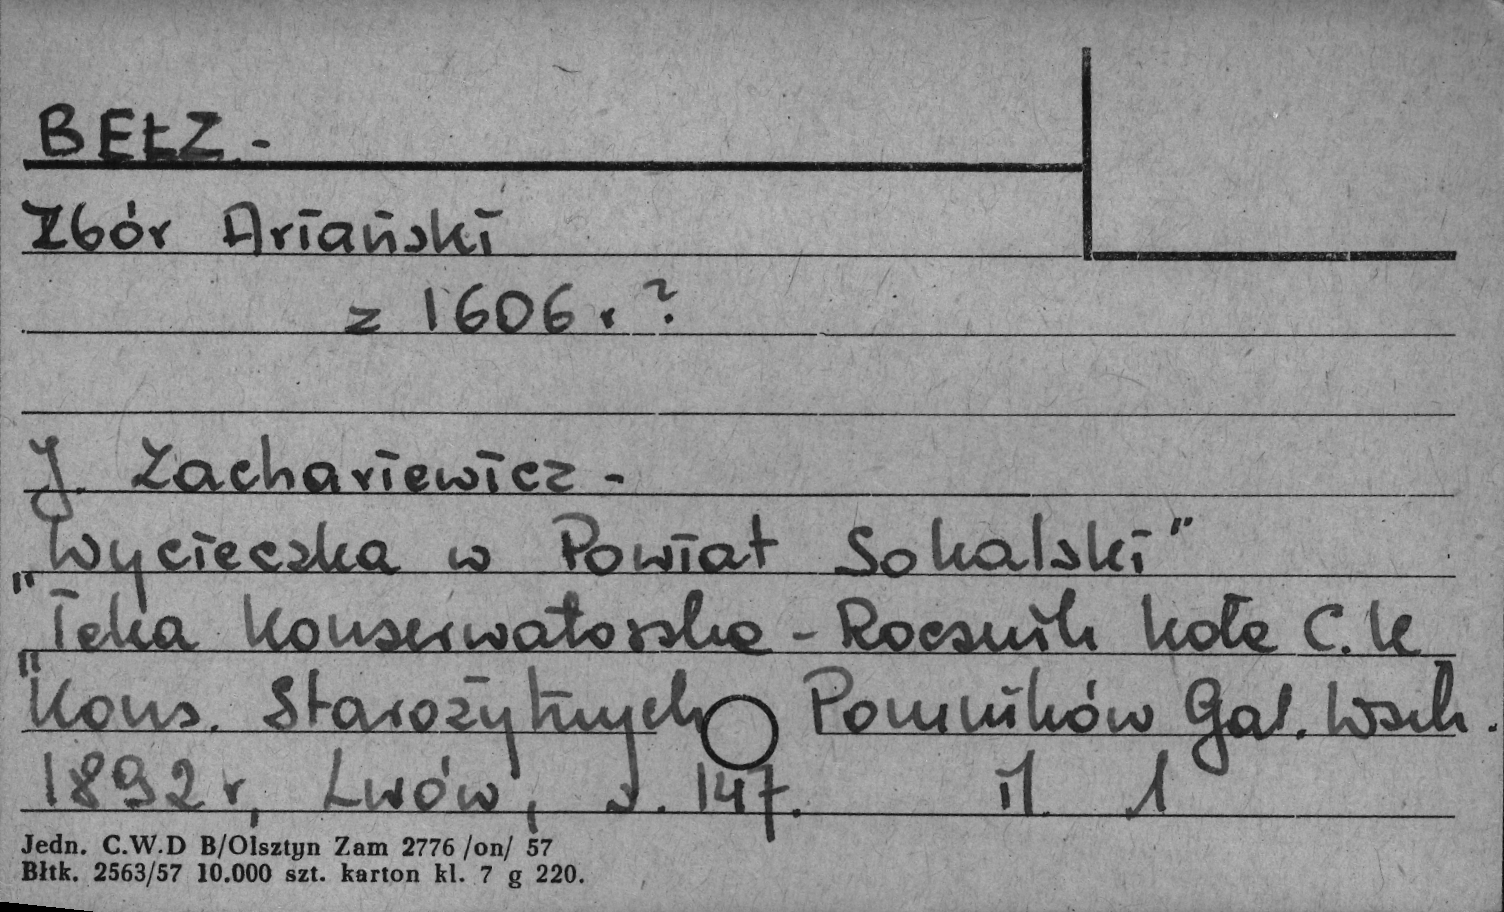 BEŁZ -
Zbór Ariański
z 1606 r ?
J. Zachariewicz -
Wycieczka w Powiat Sokalski"
"Teka Konserwatorska - Rocznik koła C. K
"Kons. Starożytnych Pomników Gal. Wsch.
1892 r, Lwów, s. 147. il 1
Jedn. C.W.D B/Olsztyn Zam 2776 /on/ 57
Błtk. 2563/57 10.000 szt. karton kl. 7 g 220.